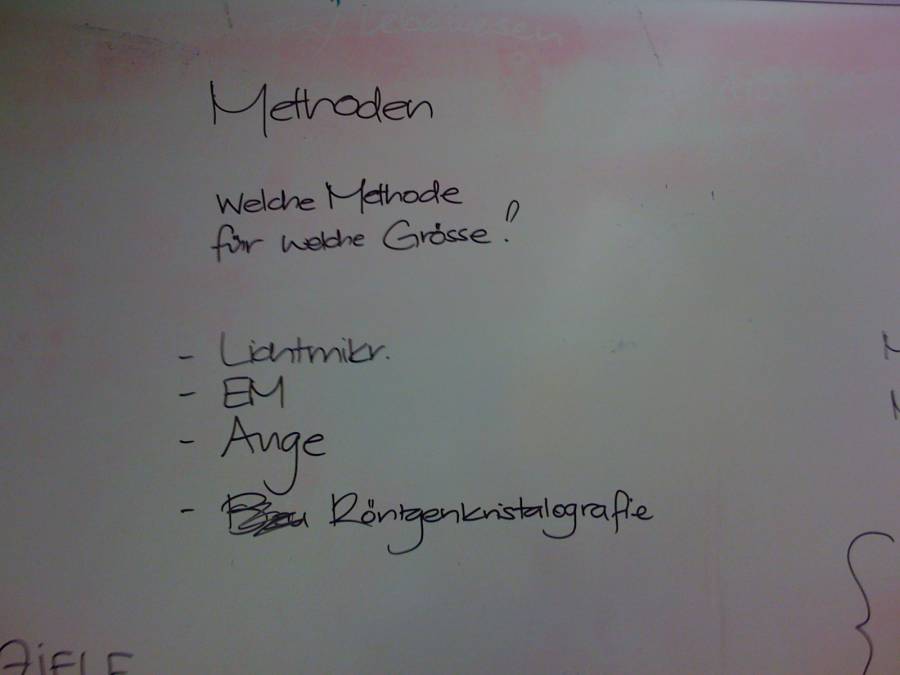 Methoden
Welche Methode
für welche Grösse?
- Lichtmikr.
- EM
- Auge
- Röntgenkristalografie
ZIELE